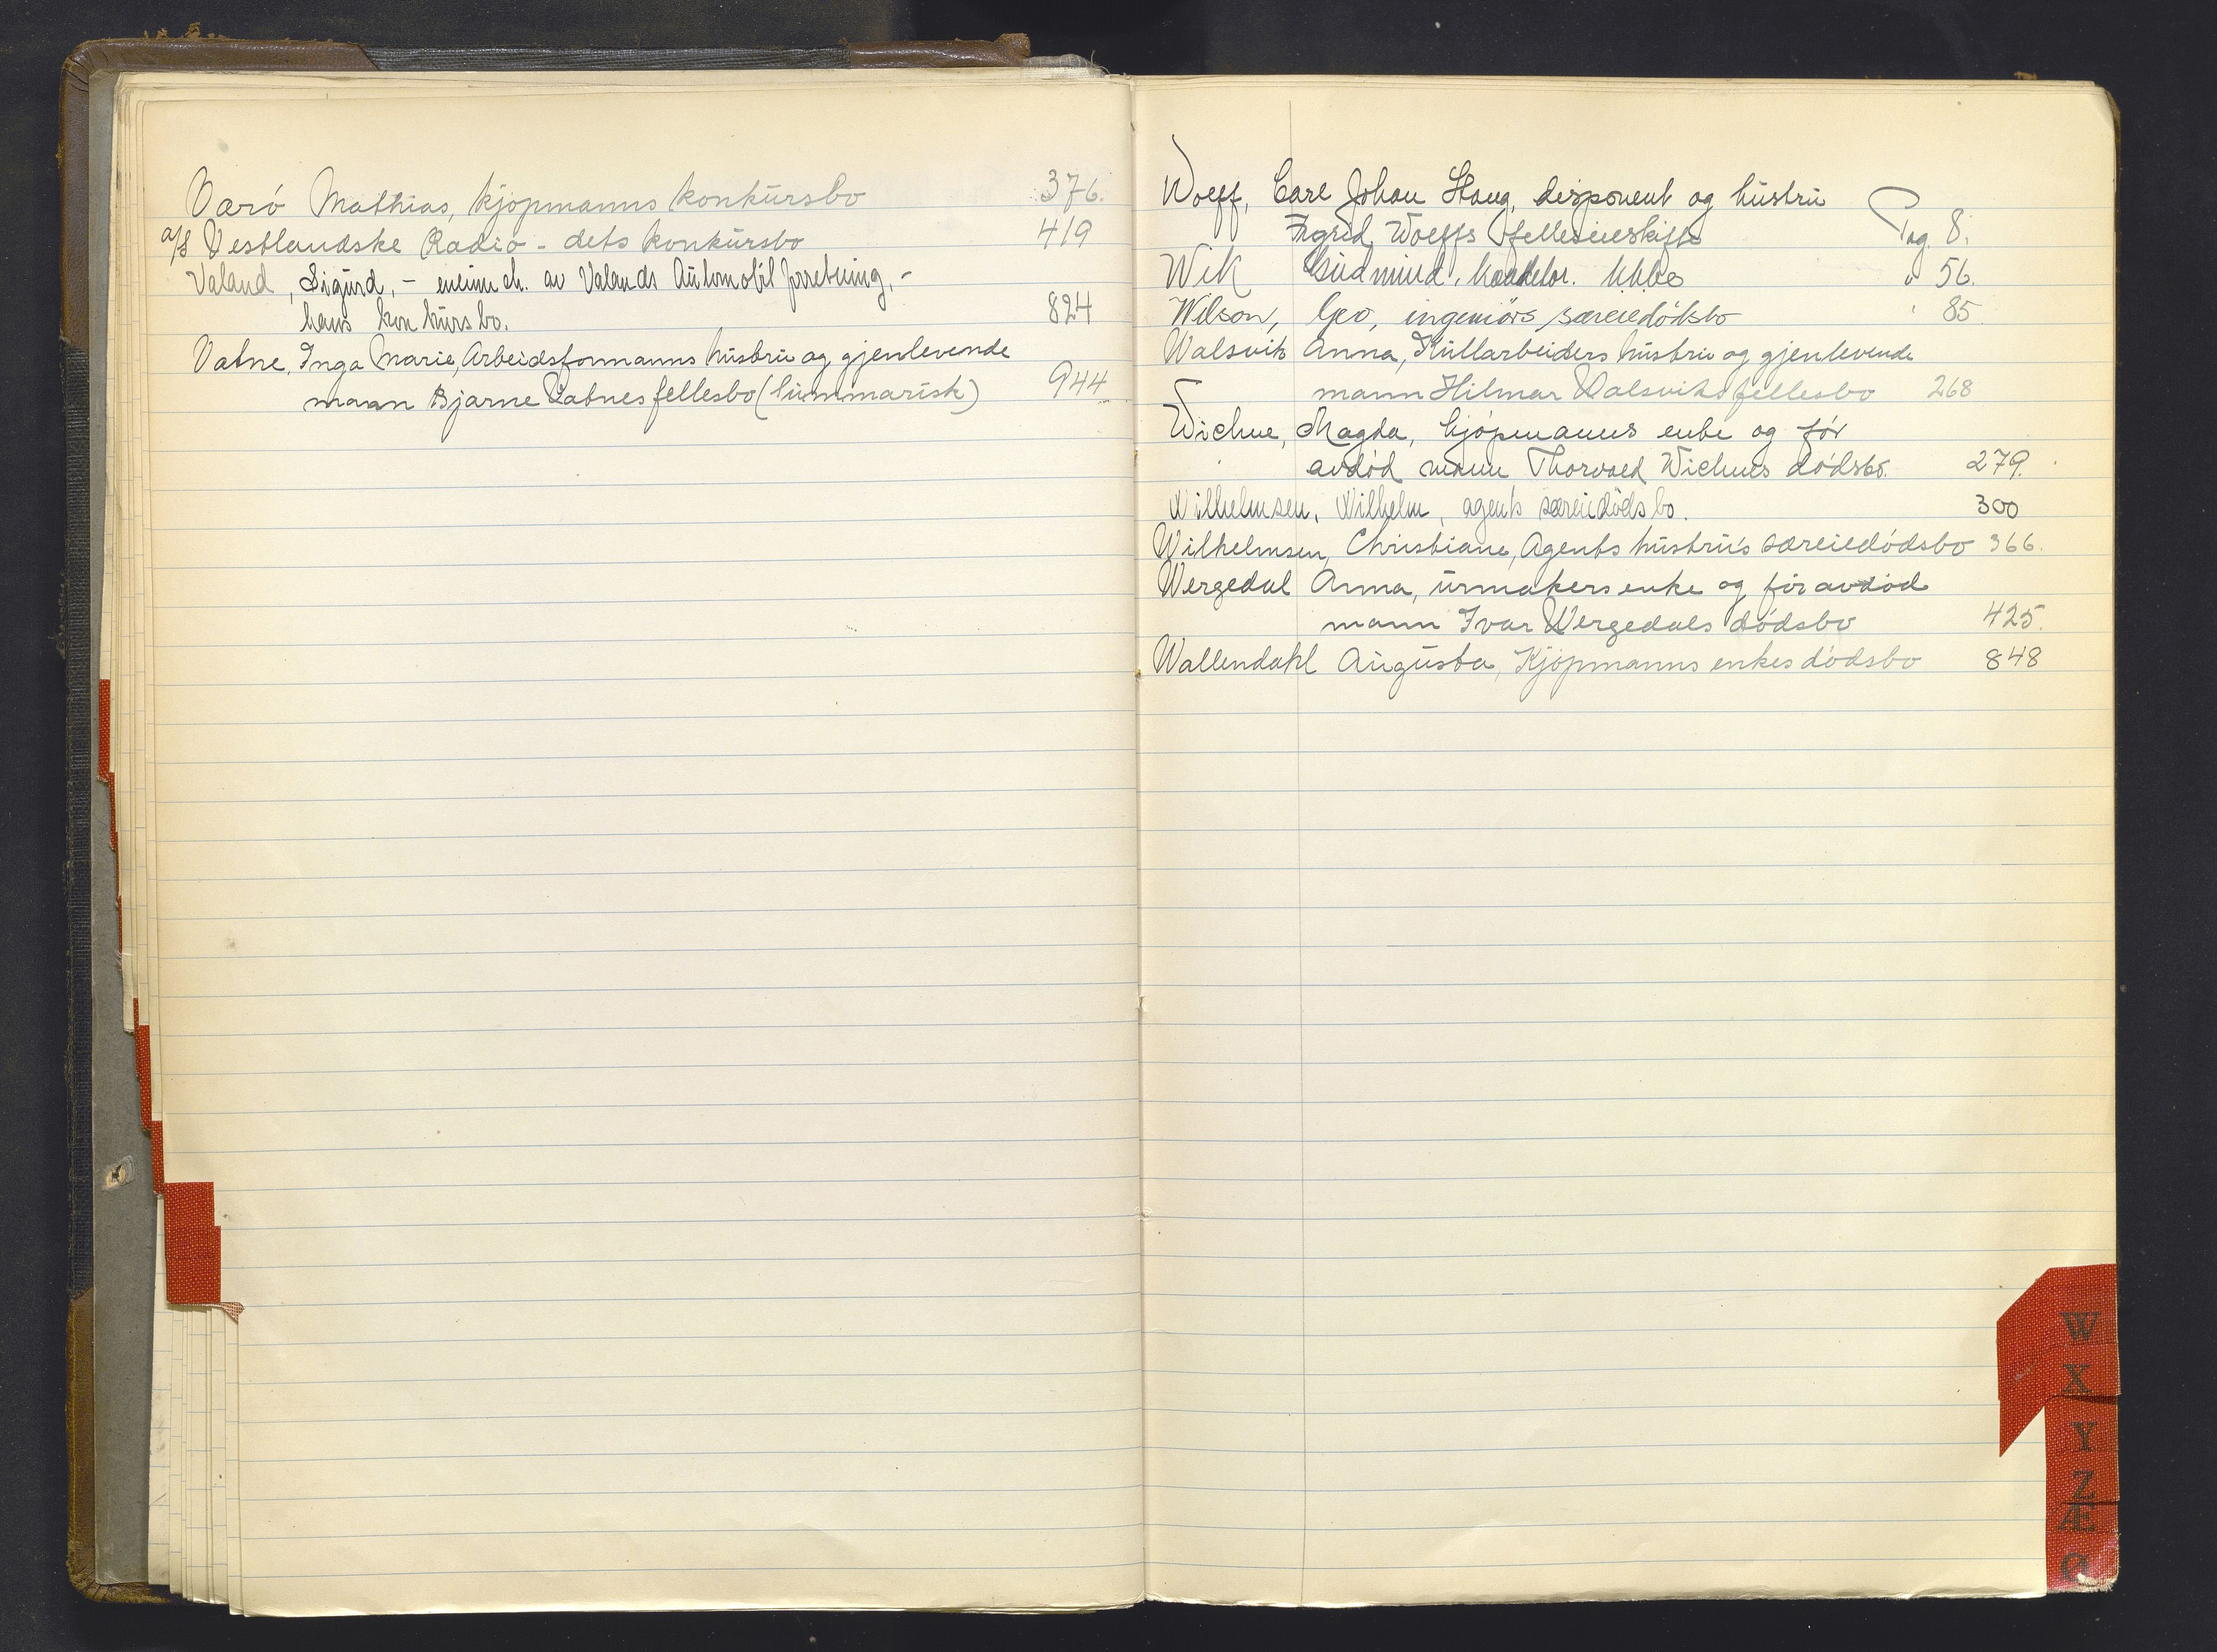 Varö Mathias, kjöpmanns konkursbo 376.
a/s Vestlandske Radio - dets konkursbo 419
Valand, Sigurd, - eneinneh. av Valands Automobilforretning, -
hans konkursbo. 824
Vatne, Inga Marie, Arbeidsformanns hustru og gjenlevende
mann Bjarne Vatnes fellesbo (summarisk) 944
Wolff, Carl Johan Haug, disponent og hustru
Ingrid Wolffs felleseieskifte Pag. 8.
Wik Gudmund, 56.
Wilson, Geo, ingeniörs særeiedödsbo 85
Walsvik Anna, Kullarbeiders hustru og gjenlevende
mann Hilmar Valsviks fellesbo 268
Wichne, Magda, kjöpmanns enke og för
avdöd mann Thorvald Wichnes dödsbo. 279.
Wilhelmsen, Wilhelm, agents særeiedödsbo. 300
Wilhelmsen, Christiane, Agents hustru's særeiedödsbo 366.
Wergedal Anna, urmakers enke og för avdöd
mann Ivar Wergedals dödsbo 425.
Wallendahl Augusta, Kjöpmanns enkes dödsbo 848
W
X
Y
Z
Æ
Ø